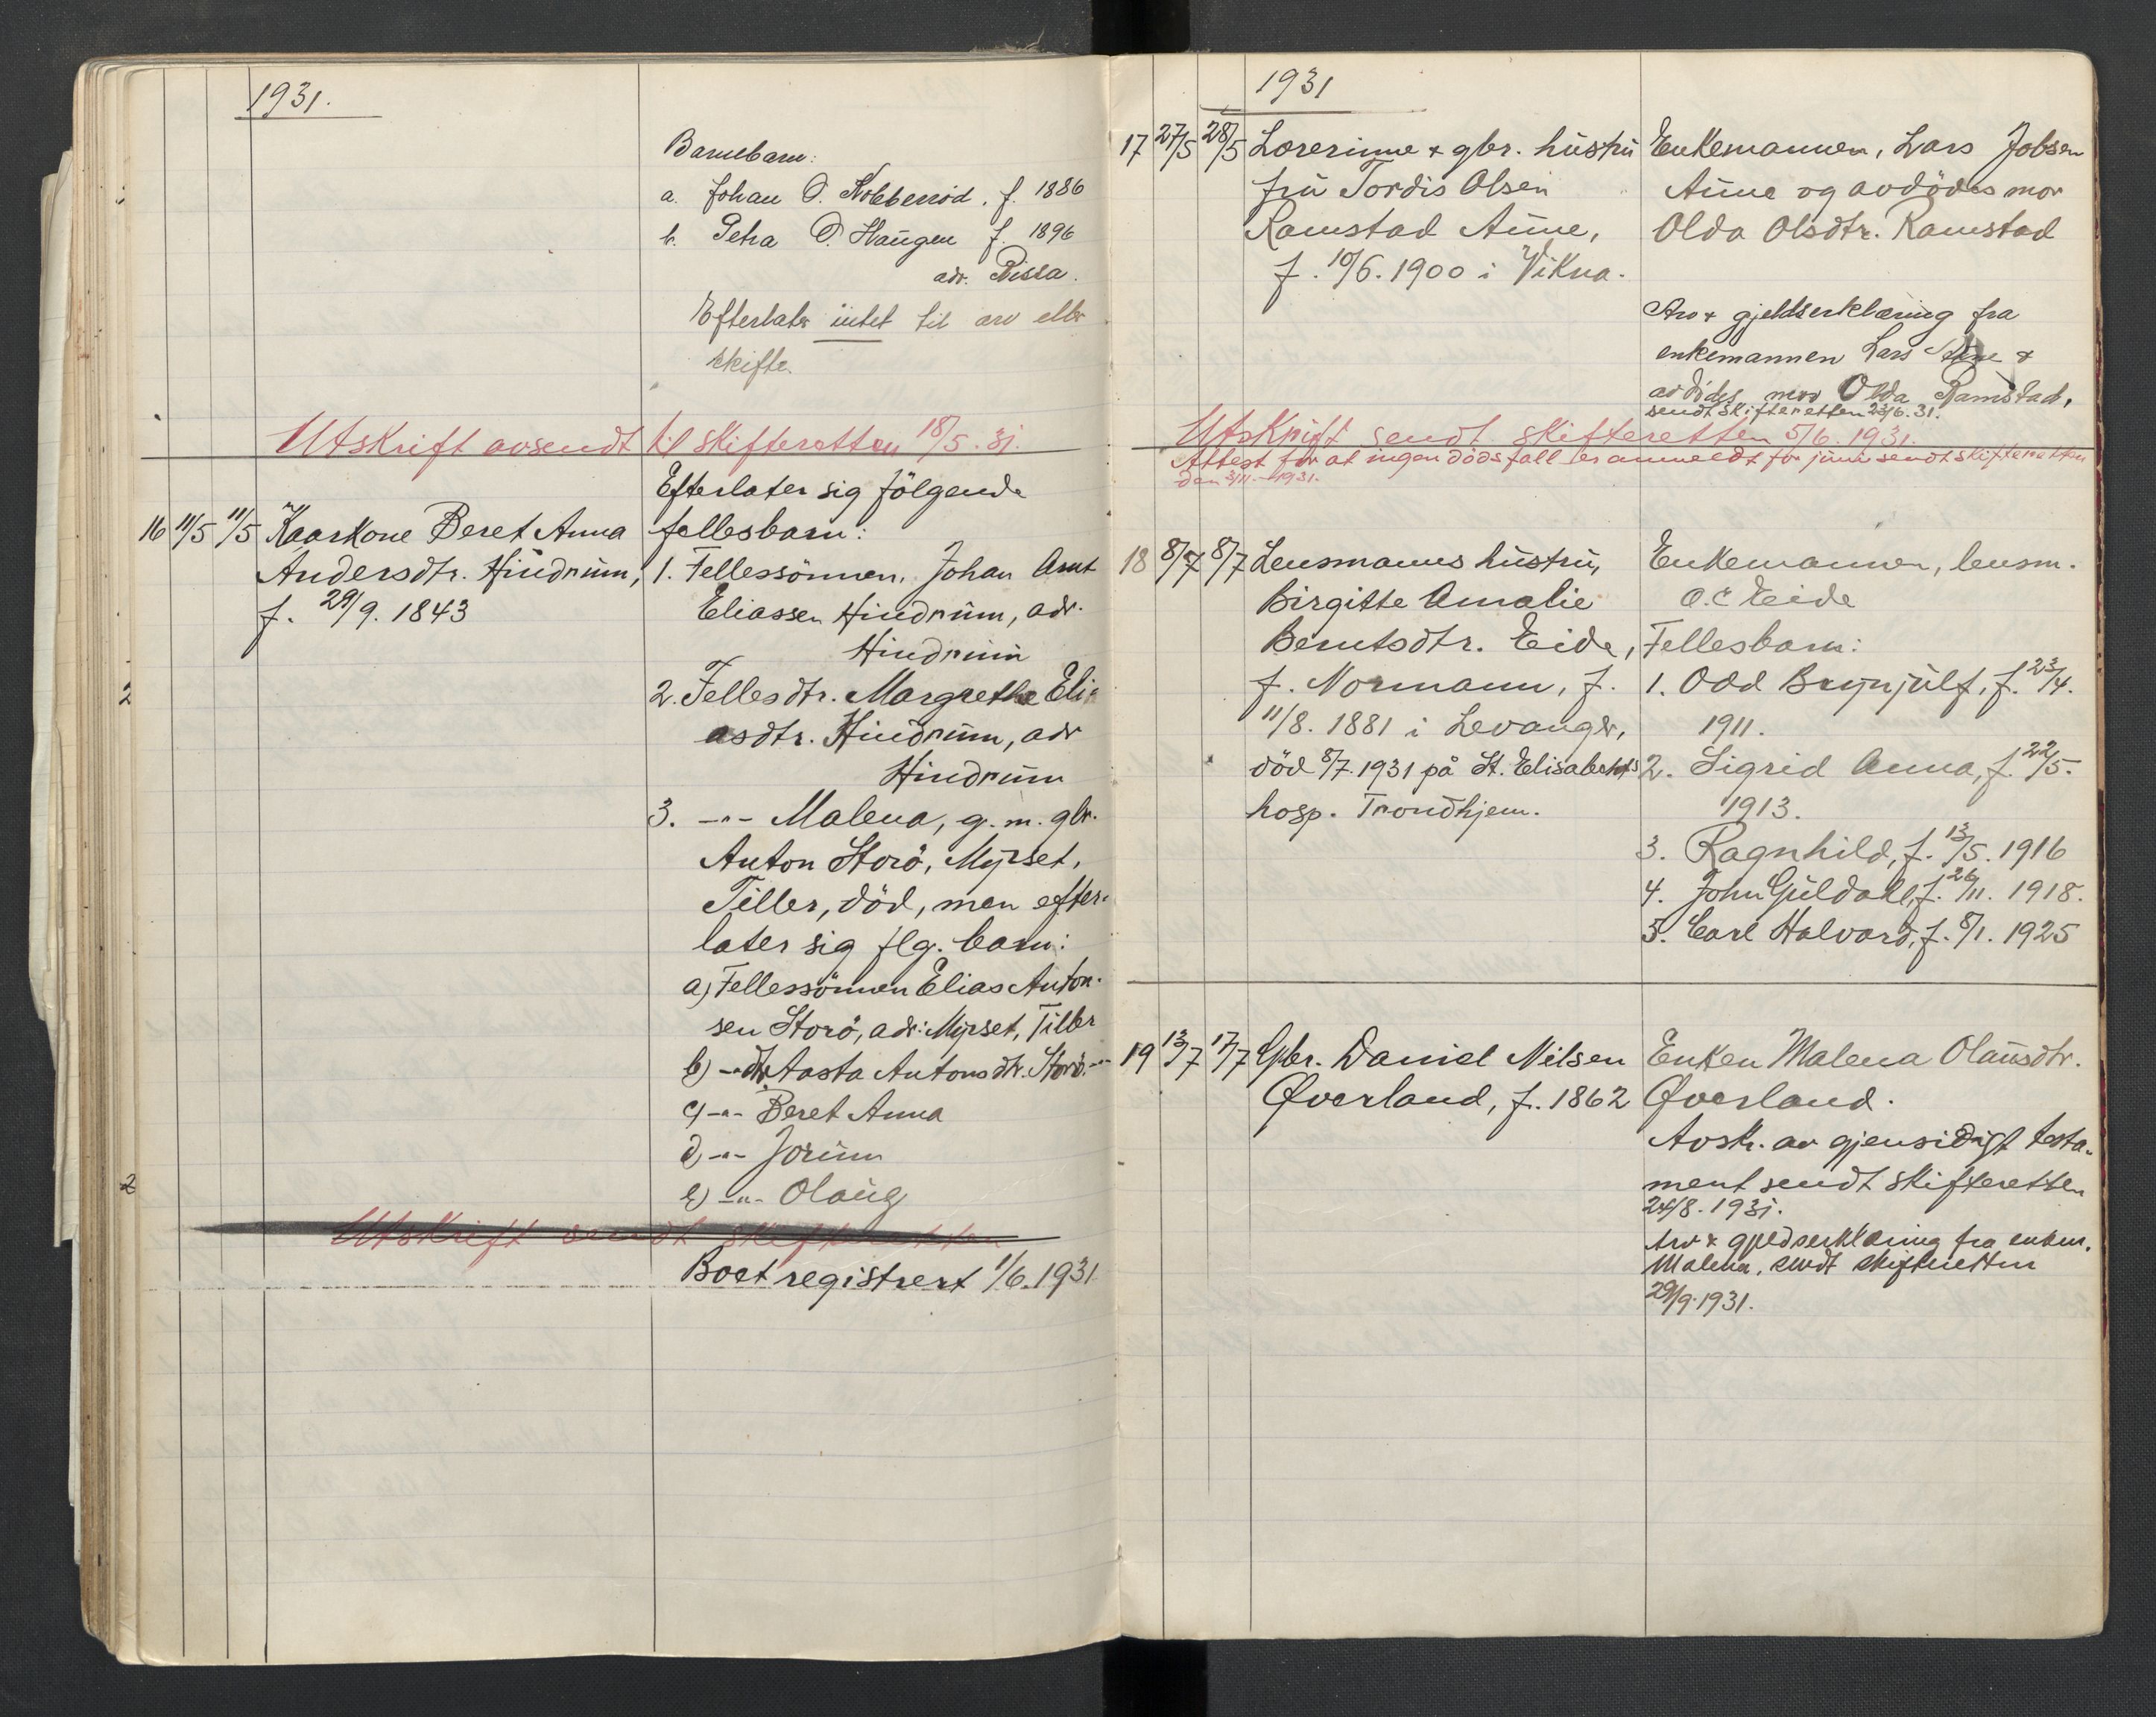 1931.
Barnebarn:
a. Johan O. Kobberrød, f. 1886
b. Petra O. Haugen f. 1896
adr. Rissa.
Efterlater intet til arv eller
skifte.
Utskrift avsendt til skifteretten 18/5. 31.
Efterlater sig følgende
16 11/5 11/5 Kaarkone Beret Anna
Andersdtr. Hindrum,
f. 29/9. 1843
fellesbarn:
1. Fellessönnen, Johan Arnt
Eliassen Hindrum, adr.
Hindrum
2. Fellesdtr. Margrethe Eli
asdtr. Hindrum, adr
Hindrum
3. -"- Malena, g. m. gbr.
Anton Storö, Myrset,
Tiller, död, men efter-
later sig flg. barn:
a) Fellessönnen Elias Anton-
sen Storö, adr: Myrset, Tiller
b) -"- dtr. Aasta Antonsdtr. Storö -"-
c) -"- Beret Anna
d) -"- Jorunn
e) -"- Olaug
Utskrift sendt skifteretten
Boet registrert 1/6. 1931
1931
17 27/5 28/5 Lærerinne & gbr. hustru
fru Tordis Olsen
Ramstad Aune,
f. 10/6. 1900 i Vikna.
Enkemannen, Lars Jobsen
Aune og avdödes mor
Olda Olsdtr. Ramstad
Arv & gjeldserklæring fra
enkemannen Lars Aune &
avdödes mor Olda Ramstad,
sendt skifteretten 23/6. 31.
Utskrift sendt skifteretten 5/6. 1931.
Attest for at ingen dödsfall er anmeldt for juni sendt skifteretten
den 3/11. 1931.
18 8/7 8/7 Lensmanns hustru,
Birgitte Amalie
Berntsdtr. Eide,
f. Normann, f.
11/8. 1881 i Levanger,
död 8/7. 1931 på St. Elisabeths
hosp. Trondhjem.
Enkemannen, lensm.
O. C. Eide
Fellesbarn:
1. Odd Brynjulf, f. 23/4.
1911.
2. Sigrid Anna, f. 22/5.
1913.
3. Ragnhild, f. 13/5. 1916
4. John Guldahl, f. 26/11. 1918.
5. Carl Halvard, f. 8/1. 1925
19 13/7 17/7 Gbr. Daniel Nilsen
Øverland, f. 1862
Enken Malena Olausdtr.
Øverland.
Avskr. av gjensidigt testa-
ment sendt skifteretten
24/8. 1931.
Arv & gjeldserklæring fra enken,
Malena, sendt skifteretten
29/9. 1931.